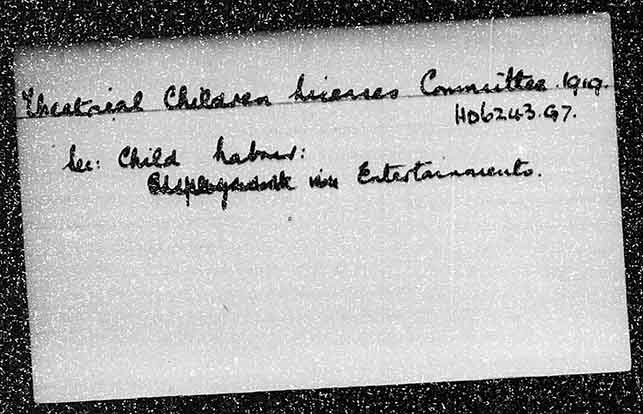 Theatrical Children Licenses Committee. 1919.
HD6243.G7.
See: Child Labour:
Employment in Entertainments.